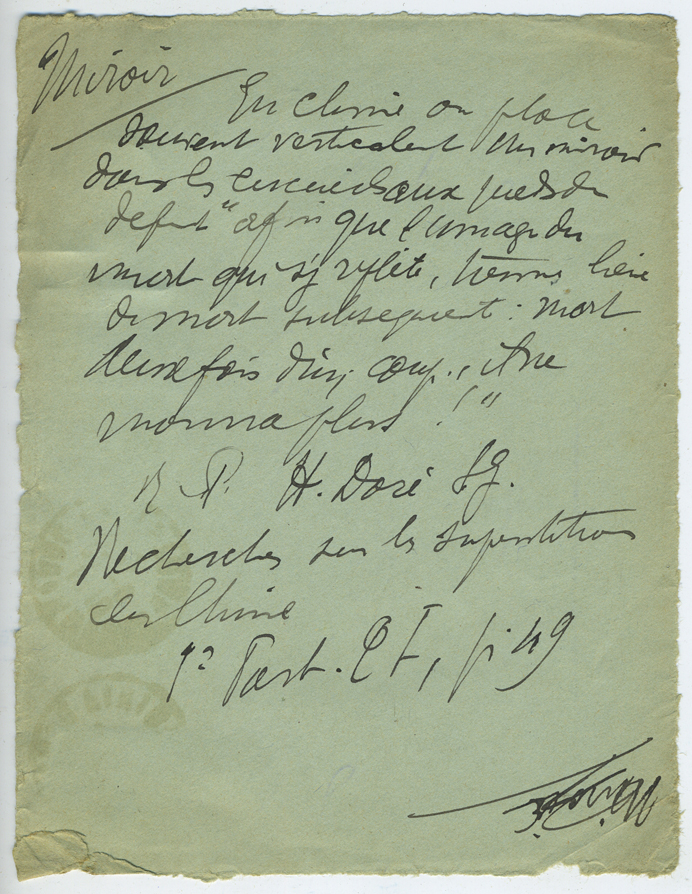 Miroir
En Chine on place
souvent verticalement un miroir
dans les cercueils aux pieds du
défunt "afin que l'image du
mort qui s'y reflète, tienne lieu
de mort subséquent : mort
deux fois d'un coup, il ne
mourra plus !"
R. P. H. Doré S.J.
Recherches sur les superstitions
en Chine
1e Part. T I, p. 49
MAIRIE